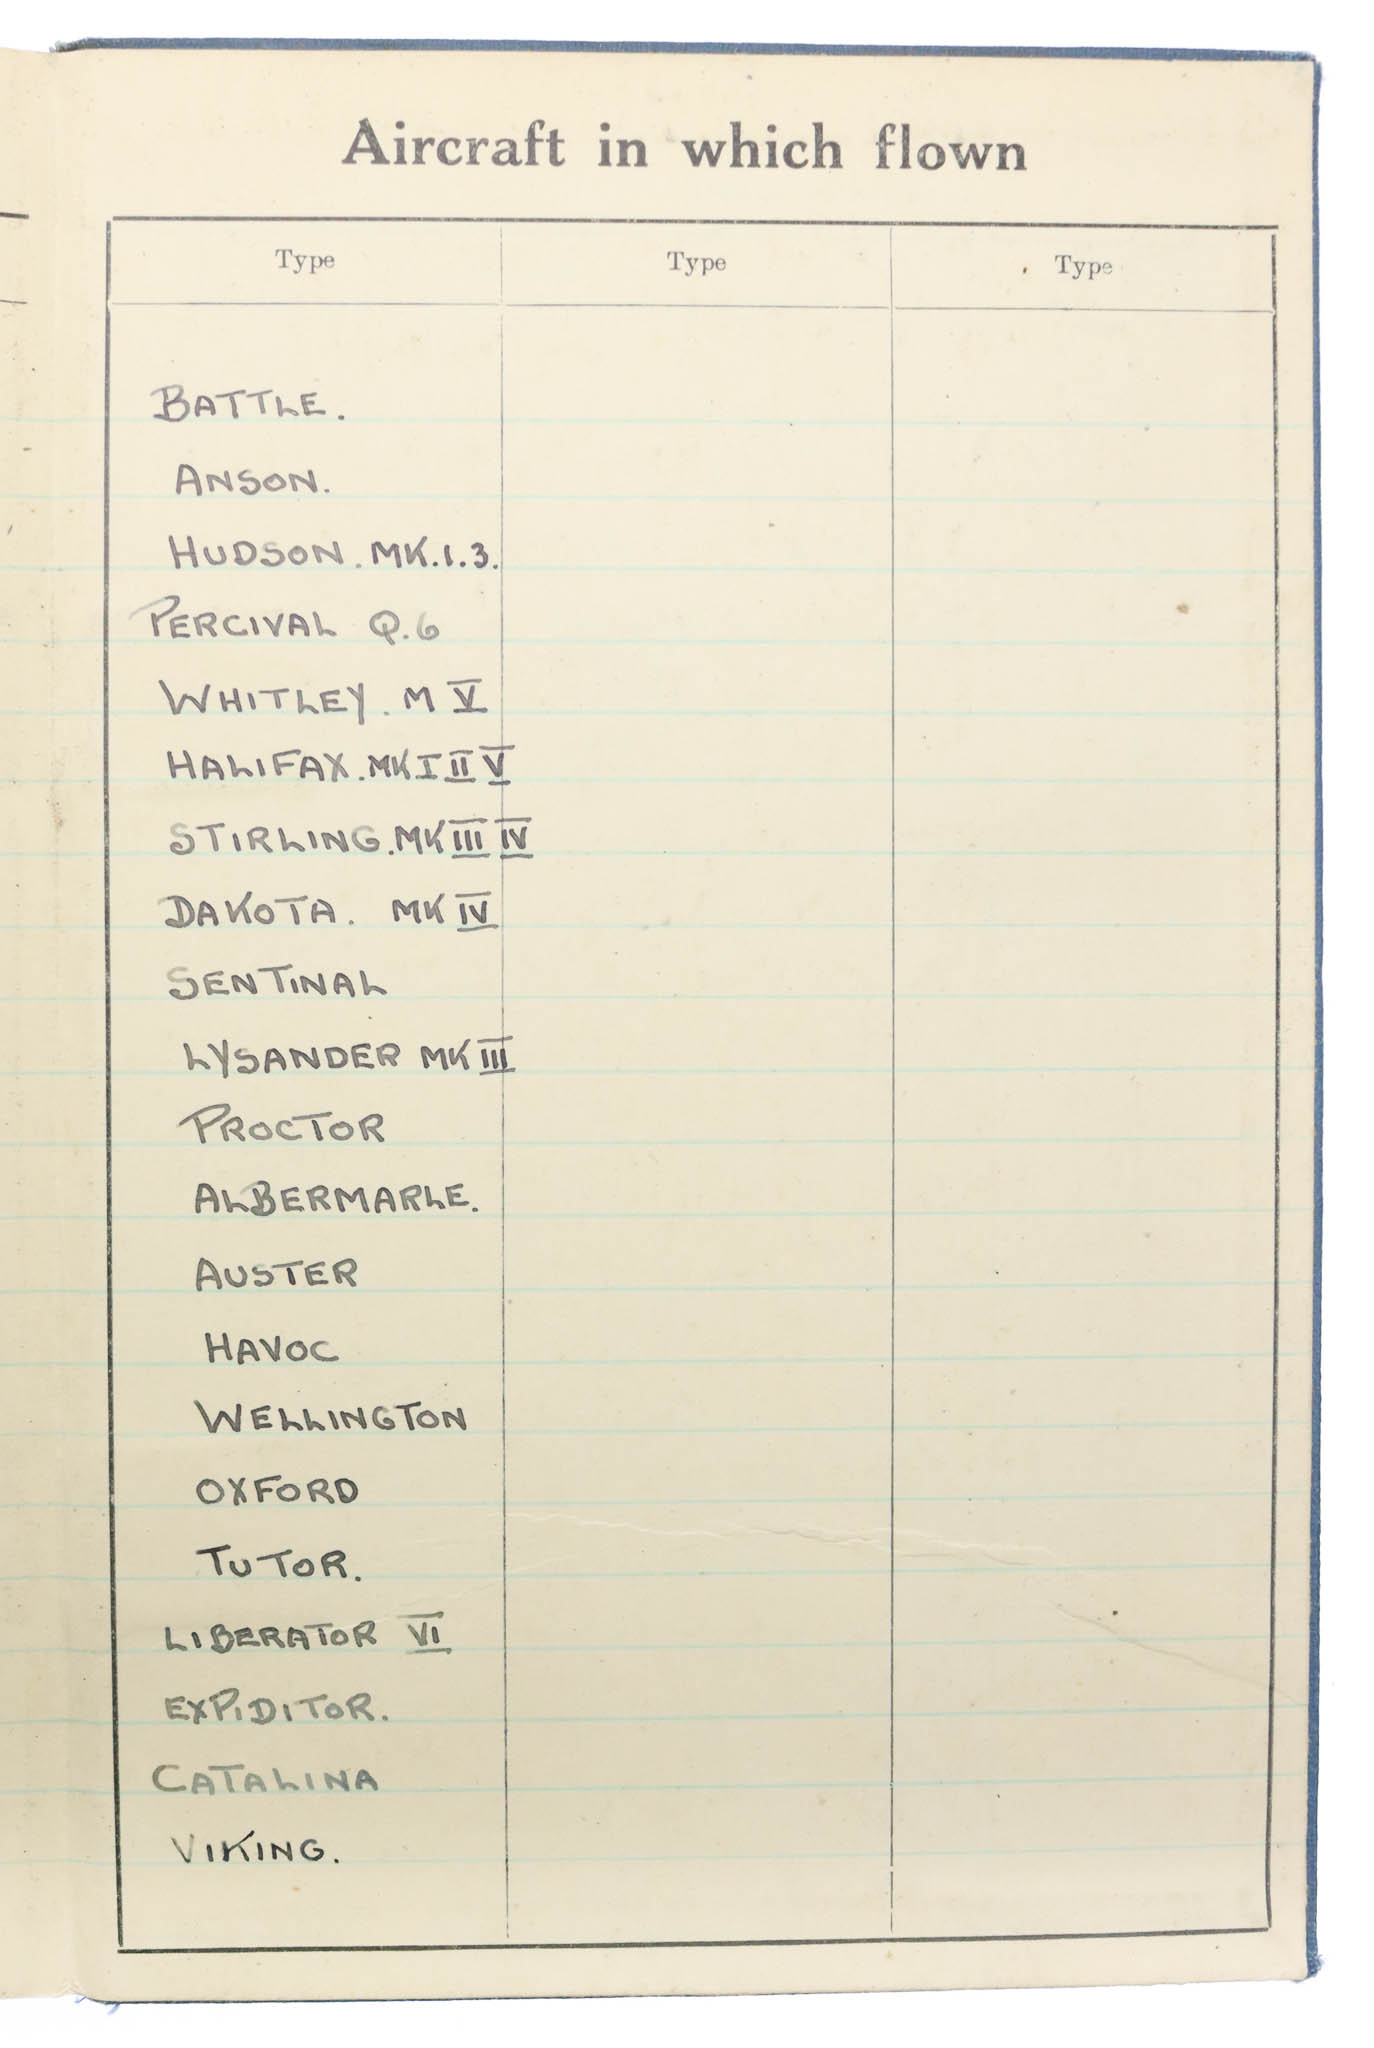 Aircraft in which flown
Type Type Type
BATTLE.
ANSON.
HUDSON. MK.1.3.
PERCIVAL Q.6
WHITLEY. M V
HALIFAX. MK I II V
STIRLING. MK III IV
DAKOTA. MK IV
SENTINAL
LYSANDER MK III
PROCTOR
ALBERMARLE.
AUSTER
HAVOC
WELLINGTON
OXFORD
TUTOR.
LIBERATOR VI
EXPIDITOR.
CATALINA
VIKING.